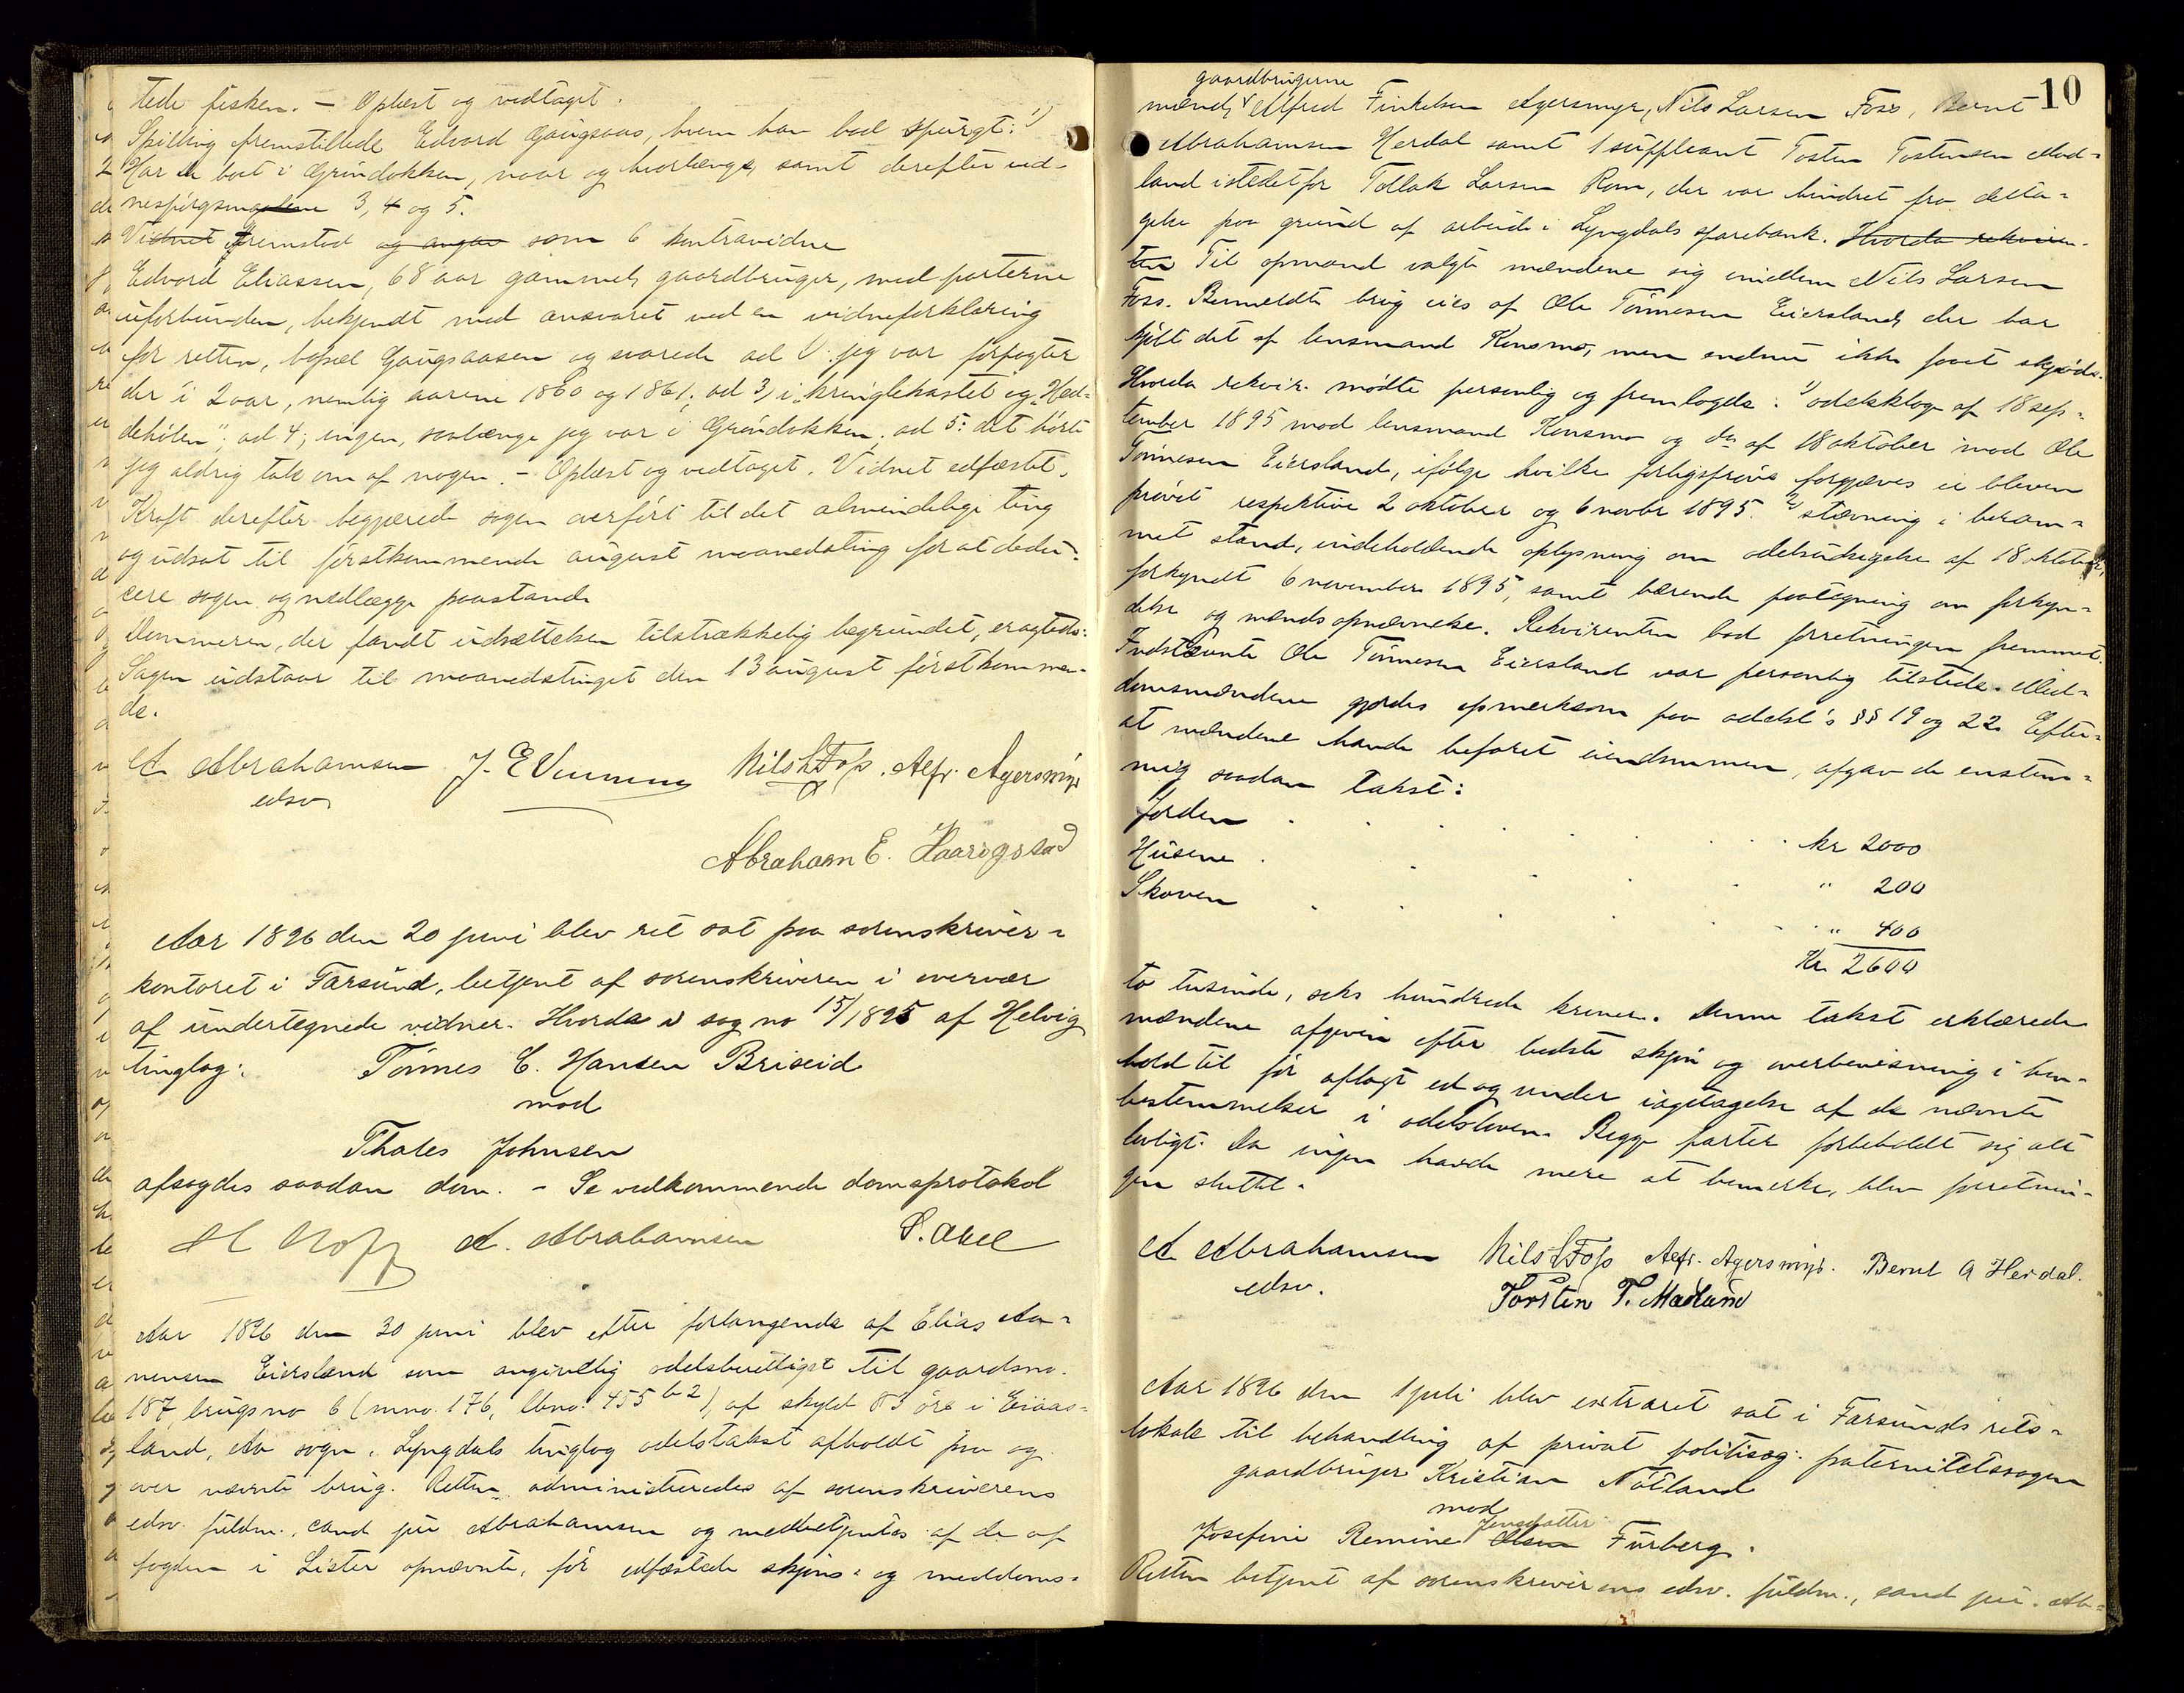 tede fisken. – Oplæst og vedtaget.
Spilling fremstillede Edvard Gaugsaas, hvem han bad spurgt: 1)
Har De boet i Grundokken, naar og hvorlænge, samt derefter vid-
nespørgsmaalene 3, 4 og 5.
Vidnet fremstod og angav som 6 kontravidne
Edvard Eliassen, 68 aar gammel, gaardbruger, med parterne
uforbunden, bekjendt med ansvaret ved en vidneforklaring
for retten, bopæl Gaugsaasen og svarede ad 1: jeg var forpagter
der i 2 aar, nemlig aarene 1860 og 1861; ad 3, i "kringlekastet og "Hed-
dehølen"; ad 4; ingen, saalænge jeg var i Grundokken; ad 5: det hørte
jeg aldrig tale om af nogen. – Oplæst og vedtaget. Vidnet edfæstet.
Kraft derefter begjærede sagen overført til det almindelige ting
og udsat til førstkommende august maanedsting for at dedu-
cere sagen og nedlægge paastand.
Dommeren, der fandt udsættelsen tilstrækkelig begrundet, eragtede:
Sagen udstaar til maanedstinget den 13 august førstkommen-
de.
A Abrahamsen J. E Vummes Nils L Foss. Alfr. Agersmyr
edsv
Abraham E. Haarigstad
Aar 1896 den 20 juni blev ret sat paa sorenskriver-
kontoret i Farsund, betjent af sorenskriveren i overvær
af undertegnede vidner. Hvorda i sag no 15/1895 af Helvig
tinglag:
Tønnes C. Hansen Briseid
mod
Thales Johnsen
afsagdes saadan dom. – Se vedkommende domsprotokol
A. Abrahamsen
Aar 1896 den 30 juni blev efter forlangende af Elias Aa-
nensen Eiersland som angivelig odelsberettiget til gaardsno.
187, brugsno 6 (mno. 176, lbno. 455 b 2), af skyld 83 øre i Eiaas-
land, Aa sogn, Lyngdals tinglag odelstakst afholdt paa og
over nævnte brug. Retten administreredes af sorenskriverens
edsv. fuldm., cand jur Abrahamsen og medbetjentes af de af
fogden i Lister opnævnte, før edfæstede skjøns- og meddoms-
10
gaardbrugerne
mænd, Alfred Finkelsen Agersmyr, Nils Larsen Foss, Bernt
Abrahamsen Herdal samt 1 suppleant Tosten Tostensen Mad-
land istedetfor Tollak Larsen Rom, der var hindret fra delta-
gelse paa grund af arbeide i Lyngdals sparebank. Hvorda rekviren-
ten Til opmand valgte mændene sig imellem Nils Larsen
Foss. Bemeldte brug eies af Ole Tønnesen Eiersland, der har
kjøbt det af lensmand Konsmo, men endnu ikke faaet skjøde.
Hvorda rekvir. mødte personlig og fremlagde: 1) odelsklage af 18 sep-
tember 1895 mod lensmand Konsmo og do af 18 oktober mod Ole
Tønnesen Eiersland, ifølge hvilke forligsprøve forgjæves er bleven
prøvet respektive 2 oktober og 6 novbr 1895. 2) stævning i beram-
met stand, indeholdende oplysning om odelsudsigelse af 18 oktober,
forkyndt 6 november 1895, samt bærende paategning om forkyn-
delse og mands opnævnelse. Rekvirenten bad forretningen fremmet.
Indstævnte Ole Tønnesen Eiersland var personlig tilstede. Med-
domsmændene gjordes opmerksom paa odelsl's §§ 19 og 22. Efter-
at mændene havde befaret eiendommen, afgav de enstem-
mig saadan takst:
Jorden . . . . . . kr 2000
Husene . . . . . " 200
Skoven . . . . . " 400
Kr. 2600
to tusinde, seks hundrede kroner. Denne takst erklærede
mændene afgiven efter bedste skjøn og overbevisning i hen-
hold til før aflagt ed og under iagttagelse af de nævnte
bestemmelser i odelsloven. Begge parter forbeholdt sig alt
lovligt. Da ingen havde mere at bemerke, blev forretnin-
gen sluttet.
A Abrahamsen Nils L Foss Alfr. Agersmyr. Bernt A Herdal.
edsv.
Torsten T. Madland
Aar 1896 den 1 juli blev extraret sat i Farsunds rets-
lokale til behandling af privat politisag: paternitetssagen
gaardbruger Kristian Nøtland
mod
Jensdatter
Josefine Remine Olsen Furberg.
Retten betjent af sorenskriverens edsv. fuldm., cand jur. Ab-